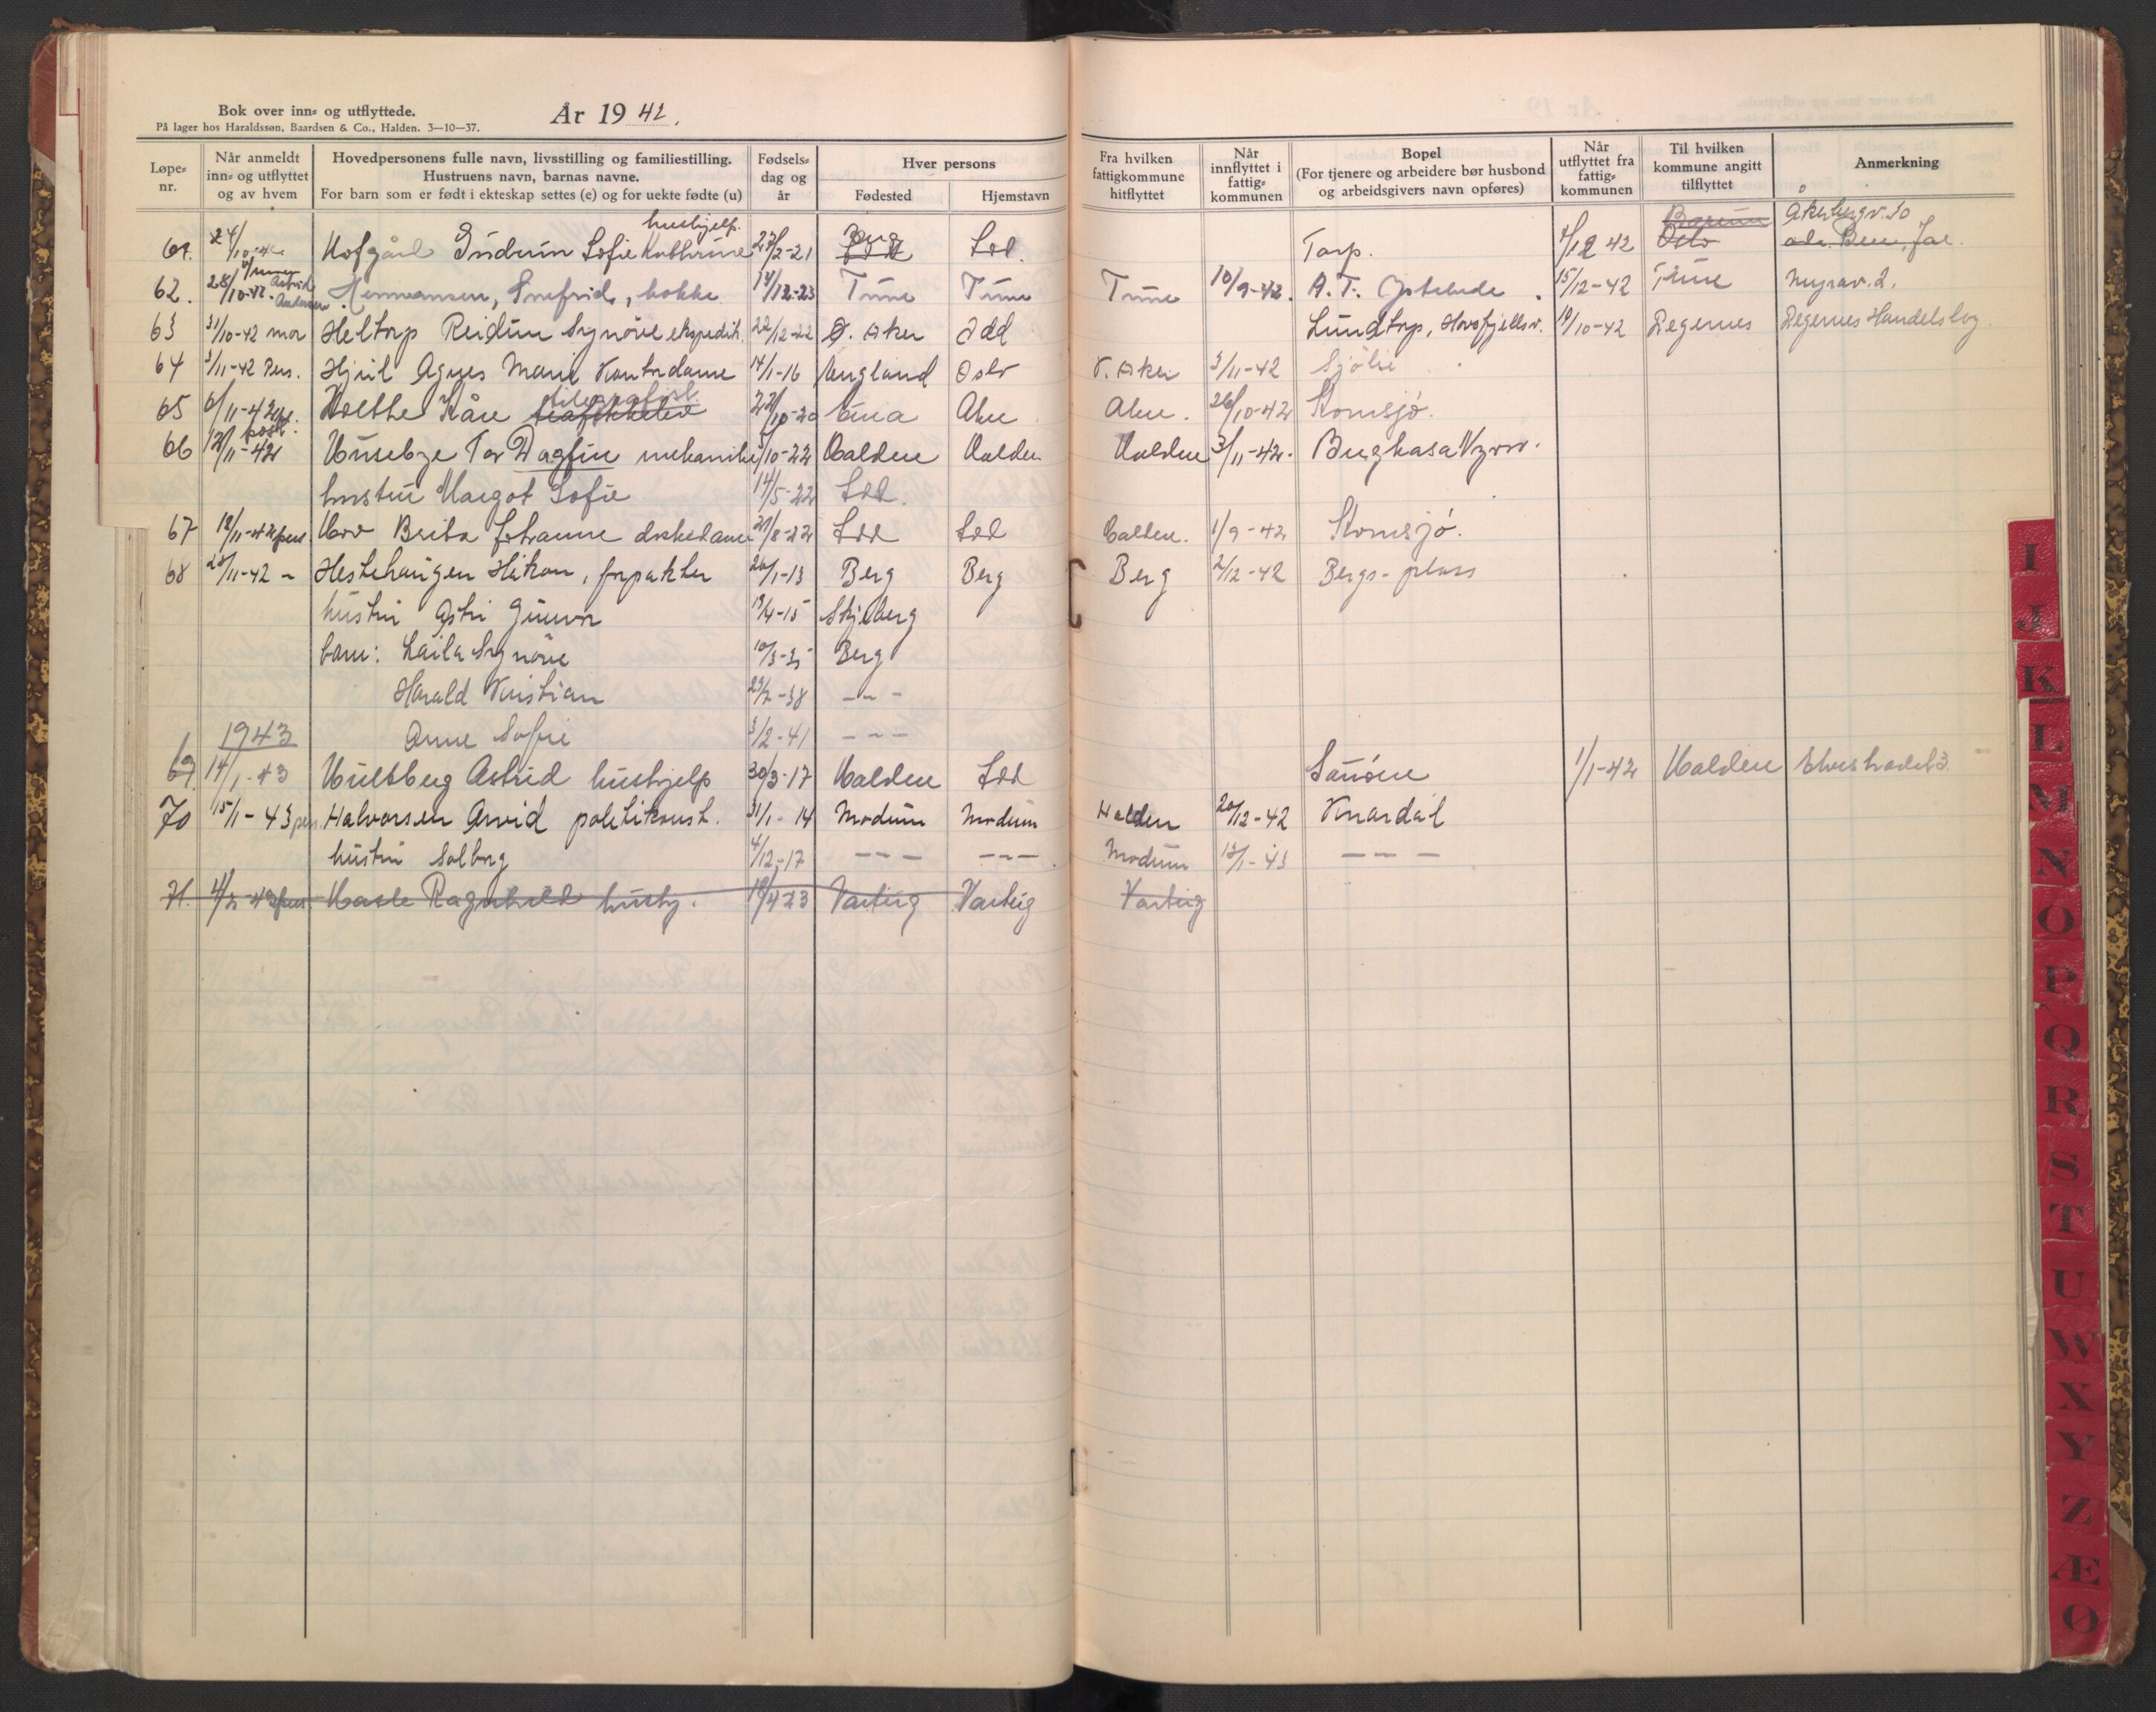 Bok over inn- og utflyttede.
På lager hos Haraldssøn, Baardsen & Co., Halden. 3—10—37.
År 19 42.
Løpe-nr.
Når anmeldt inn- og utflyttet og av hvem
Hovedpersonens fulle navn, livsstilling og familiestilling.
Hustruens navn, barnas navne.
For barn som er født i ekteskap settes (e) og for uekte fødte (u)
Fødsels-dag og år
Hver persons
Fødested
Hjemstavn
Fra hvilken fattigkommune hitflyttet
Når innflyttet i fattig-kommunen
Bopel
(For tjenere og arbeidere bør husbond og arbeidsgivers navn opføres)
Når utflyttet fra fattig-kommunen
Til hvilken kommune angitt tilflyttet
Anmerkning
hushjelp.
61. 24/10-42 Hofgård Gudrun Sofie Kathrine 27/2-21 Berg Idd. Torp. 1/12 42 Oslo Akebergv. 50
62. 28/10-42 Hermansen, Snefrid, kokke 14/12-23 Tune Tune Tune 10/9-42. A.T. 15/12-42 Tune
63 31/10-42 mor Heltorp Reidun Synøve ekspedit. 22/12-22 Ø. Aker Idd Lundtorp, 19/10-42 Degernes Degernes Handelslag
64 3/11-42 Pers. Agnes Marie Kontordame 14/1-16 Oslo V. Aker 3/11-42 Sjølie
telegrafist
65 6/11-42 Holthe Kåre 22/10-20 Aker Aker. 26/10-42 Kornsjø.
66 12/11-42 Huseby Tor Dagfin mekaniker 5/10-22 Halden Halden Halden 3/11-42.
hustru Margot Sofie 14/5-22 Idd.
67 18/11-42 pers Hov Brita Johanne 21/8-22 Idd Idd Halden. 1/9-42 Kornsjø.
68 25/11-42 - Hestehaugen Håkon, forpakter 20/1-13 Berg Berg Berg 2/12-42 Bergs-plass
hustru Astri Gunvor 19/4-15 Skjeberg
barn: Laila Synøve 10/3-35 Berg
Harald Kristian 29/7-38 - - -
1943 Anne Sofie 3/2-41 - - -
69. 14/1-43 Hultberg Astrid hushjelp 30/3-17 Halden Idd 1/1-42 Halden
70 15/1-43 pers. Halvorsen Arvid politikonst. 31/1-14 Modum Modum Halden 20/12-42 Knardal
hustru Solborg 4/12-17 - - - - - - Modum 13/1-43 - - -
71. 4/2-43 pers. Hasle Ragnhild hushj. 18/4 23 Varteig Varteig Varteig
I
J
K
L
M
N
O
P
Q
R
S
T
U
W
X
Y
Z
Æ
Ø